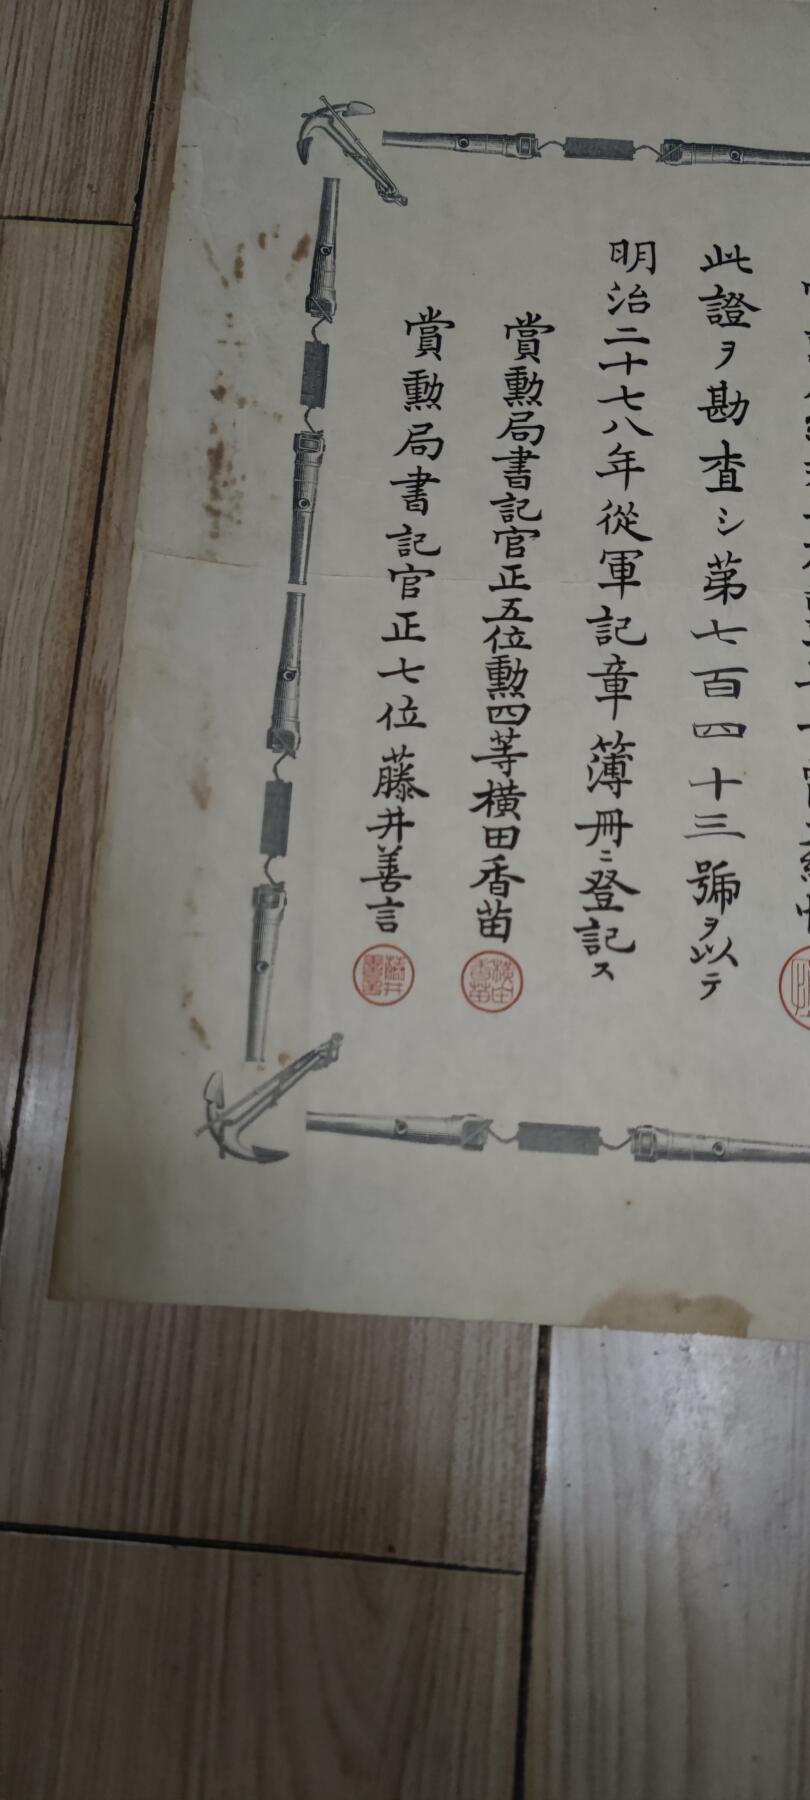 此證ヲ勘査シ第七百四十三號ヲ以テ
明治二十七八年從軍記章簿冊ニ登記ス
賞勲局書記官正五位勲四等横田香苗
横田香苗
賞勲局書記官正七位藤井善言
藤井善言